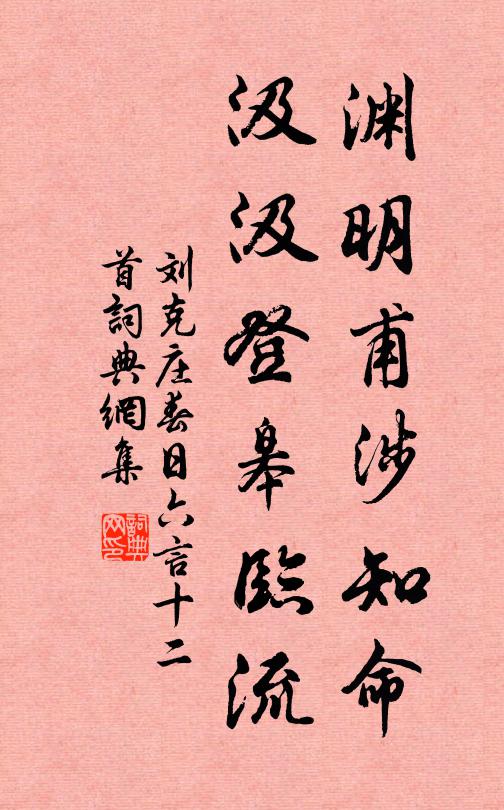 渊明甫涉知命
汲汲登皋临流
刘克庄春日六言十二
首词典网集
词典
网印